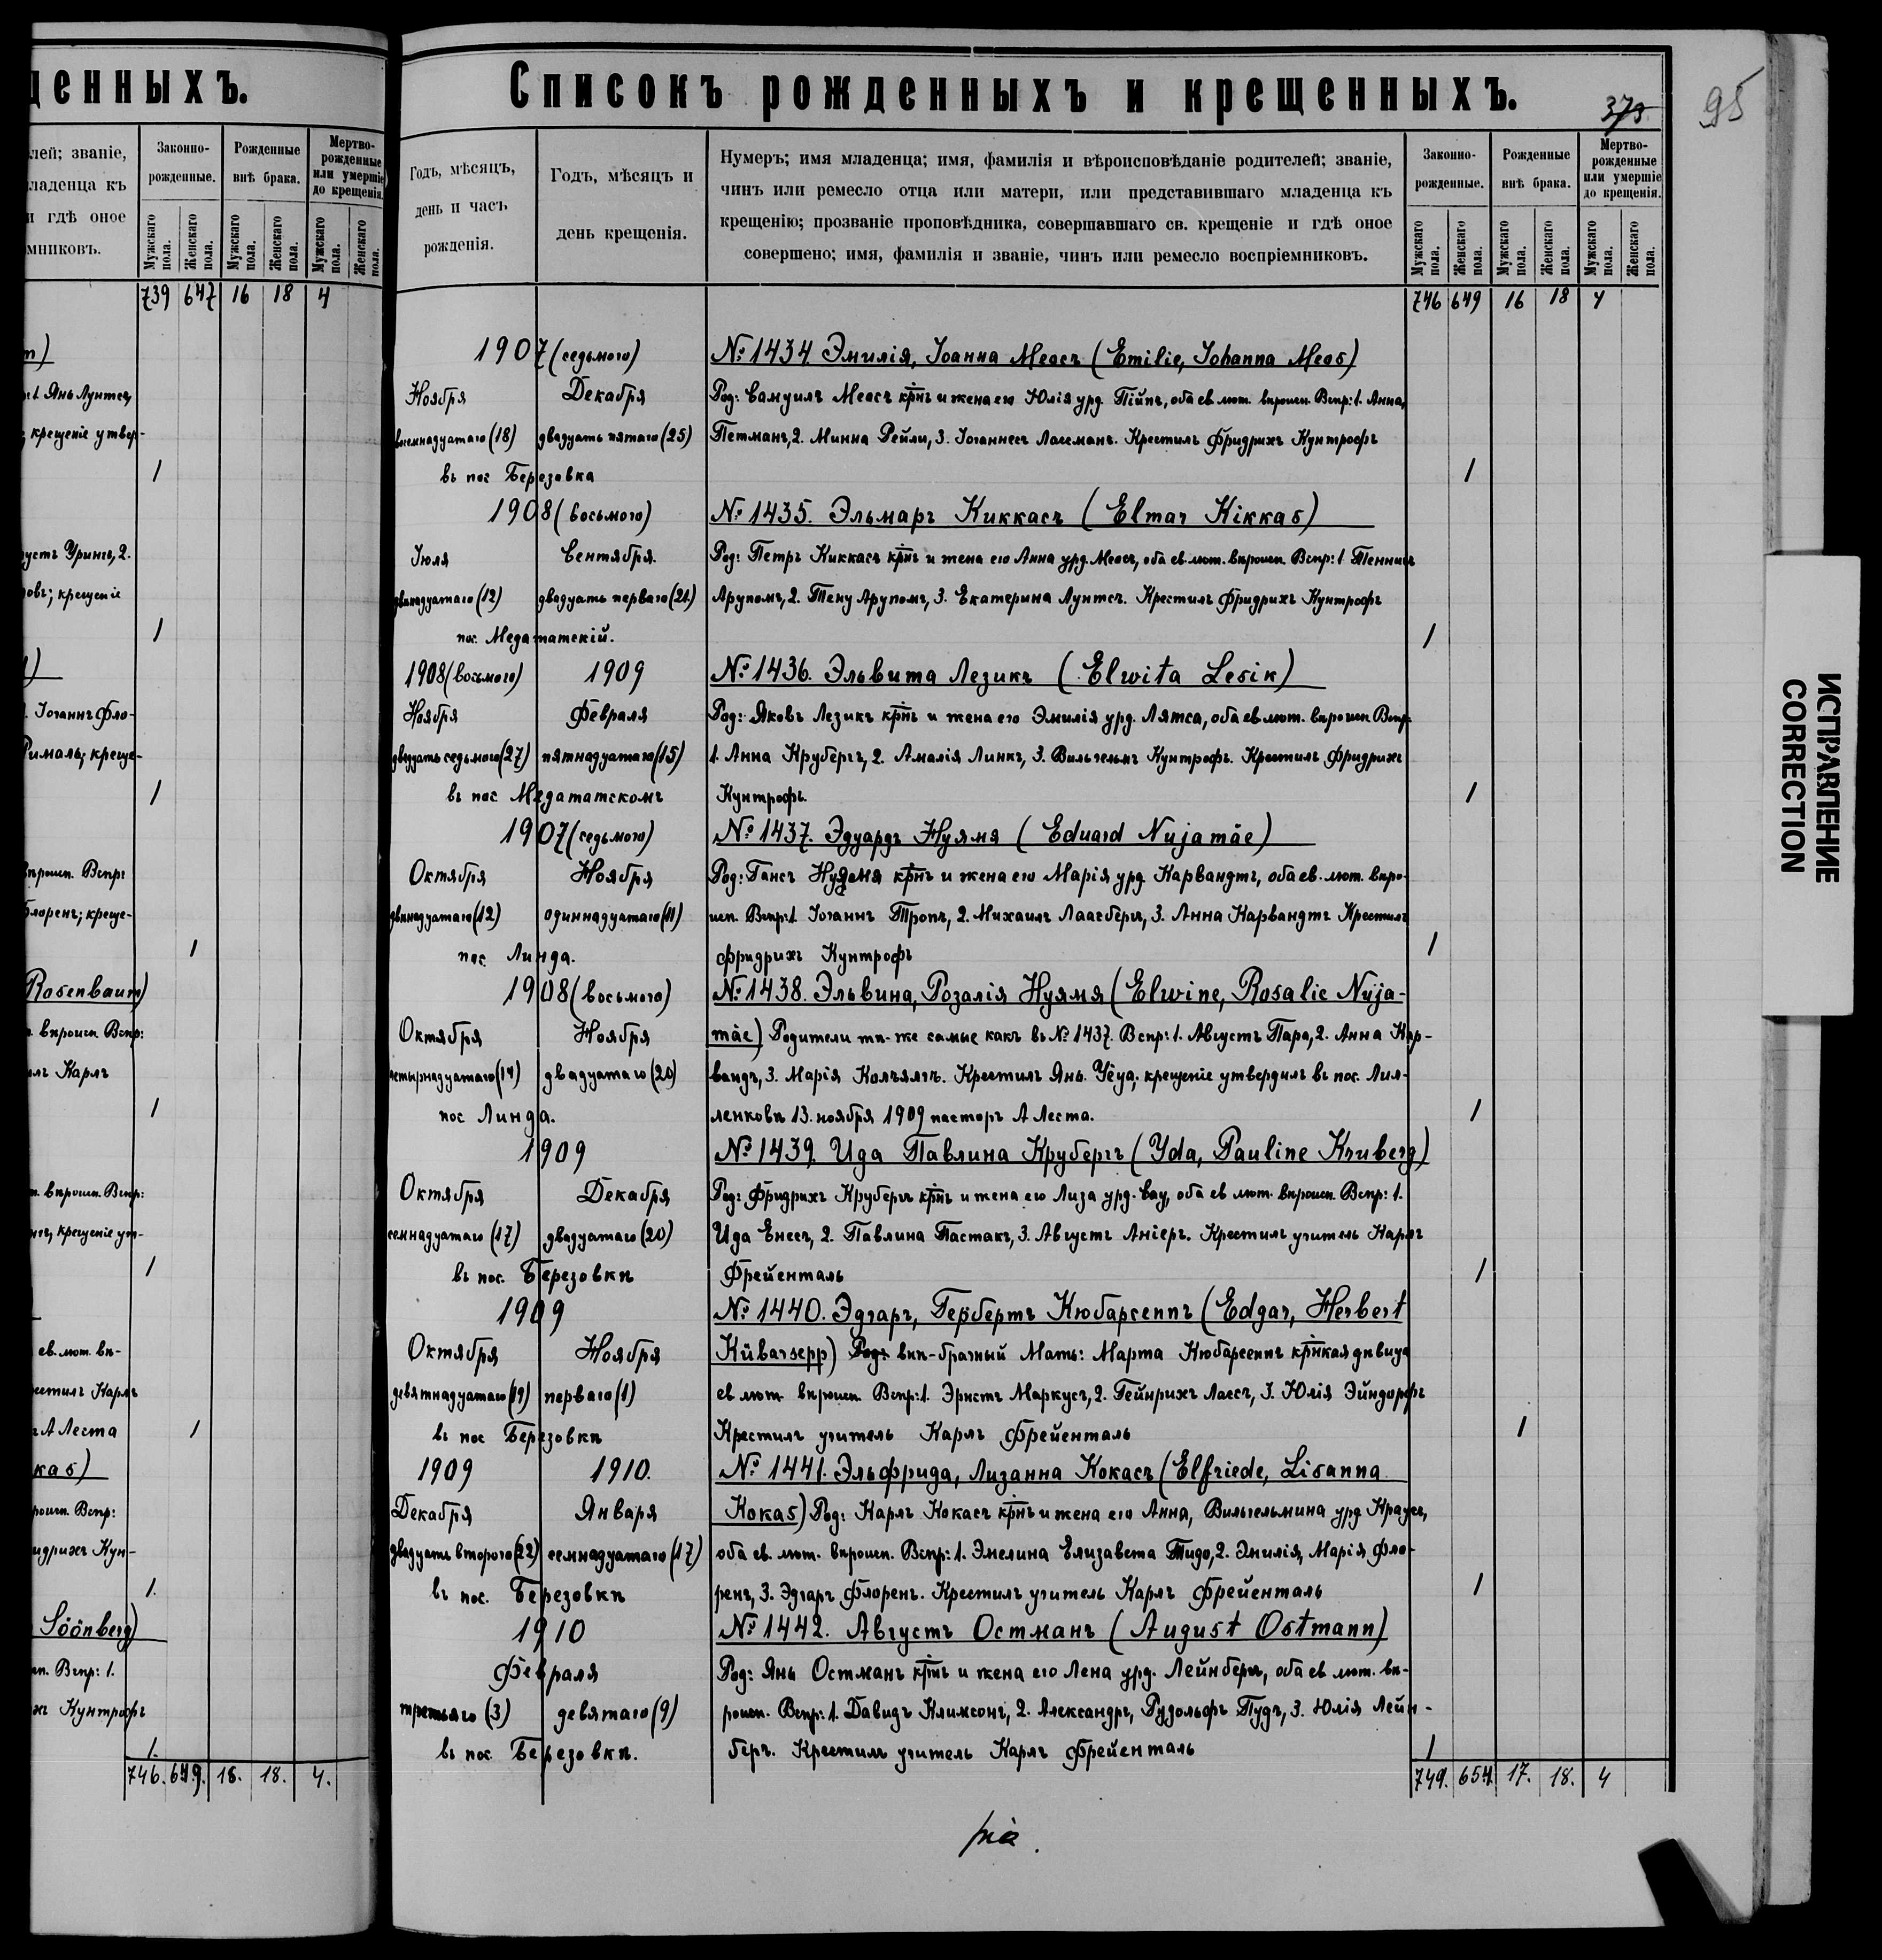 денныхъ.
лей; званіе,
ладенца къ
и гдѣ оное
мниковъ.
Законно-
рожденные.
Рожденные
внѣ брака.
Мертво-
рожденные
или умершіе
до крещенія.
Мужскаго пола.
Женскаго пола.
Мужскаго пола.
Женскаго пола.
Мужскаго пола.
Женскаго пола.
739 647 16 18 4
Янь Лунтсъ,
крещеніе утвер-
1
густъ Урингъ, 2.
крещеніе
1
Іоганнъ Фло-
Рималь; креще-
1
вѣроисп. Вспр:
Флоренъ; креще-
1
Rosenbaum)
вѣроисп. Вспр:
Карлъ
1
вѣроисп. Вспр:
крещеніе ут-
1
ев. лют. вѣ-
Крестилъ Карлъ
А Леста 1
kas)
роисп. Вспр:
идрихъ Кун-
1.
Söönberg)
Вспр: 1.
Кунтрофъ
1.
746. 649. 16. 18. 4.
Списокъ рожденныхъ и крещенныхъ.
373
95
Годъ, мѣсяцъ,
день и часъ
рожденія.
Годъ, мѣсяцъ и
день крещенія.
Нумеръ; имя младенца; имя, фамилія и вѣроисповѣданіе родителей; званіе,
чинъ или ремесло отца или матери, или представившаго младенца къ
крещенію; прозваніе проповѣдника, совершавшаго св. крещеніе и гдѣ оное
совершено; имя, фамилія и званіе, чинъ или ремесло воспріемниковъ.
Законно-
рожденные.
Рожденные
внѣ брака.
Мертво-
рожденные
или умершіе
до крещенія.
Мужскаго пола.
Женскаго пола.
Мужскаго пола.
Женскаго пола.
Мужскаго пола.
Женскаго пола.
746 649 16 18 4
1907 (седьмого) № 1434 Эмилія, Іоанна Меосъ (Emilie, Johanna Meos)
Ноября Декабря Род: Самуилъ Меосъ крнъ и жена его Юлія урд. Пійпъ, оба ев. лют. вѣроисп. Вспр: 1. Анна,
восемнадцатаго (18) двадцать пятаго (25) Петманъ, 2. Минна Рейли, 3. Іоганнесъ Лассманъ. Крестилъ Фридрихъ Кунтрофъ
въ пос Березовка 1
1908 (восьмого) № 1435. Эльмаръ Киккасъ (Elmar Kikkas)
Іюля Сентября. Род: Петръ Киккасъ крнъ и жена его Анна урд. Меосъ, оба ев. лют. вѣроисп. Вспр: 1 Теннисъ
двѣнадцатаго (12) двадцать перваго (21) Арупомъ, 2. Тену Арупомъ, 3. Екатерина Лунтсъ. Крестилъ Фридрихъ Кунтрофъ
пос. Медататскій. 1
1908 (восьмого) 1909 № 1436. Эльвита Лезикъ (Elwita Lesik)
Ноября Февраля Род: Яковъ Лезикъ крнъ и жена его Эмилія урд. Лятса, оба ев лют. вѣроисп Вспр:
двадцать седьмого (27) пятнадцатаго (15) 1. Анна Кругбергъ, 2. Амалія Линкъ, 3. Вильгельмъ Кунтрофъ. Крестилъ Фридрихъ
въ пос Медататскомъ Кунтрофъ. 1
1907 (седьмого) № 1437. Эдуардъ Нуямя (Eduard Nujamäe)
Октября Ноября Род: Гансъ Нуямя крнъ и жена его Марія урд Карвандтъ, оба ев. лют. вѣро-
двѣнадцатаго (12) одиннадцатаго (11) исп. Вспр: 1. Іоганнъ Тропъ, 2. Михаилъ Лаасбергъ, 3. Анна Карвандтъ Крестилъ
пос. Линда. Фридрихъ Кунтрофъ 1
1908 (восьмого) № 1438. Эльвина, Розалія Нуямя (Elwine, Rosalie Nuja-
Октября Ноября mäe) Родители тѣ-же самые какъ въ № 1437. Вспр: 1. Августъ Пара, 2. Анна Кар-
четырнадцатаго (14) двадцатаго (20) вандъ, 3. Марія Колъялгъ. Крестилъ Янь. Уёца; крещеніе утвердилъ въ пос. Лил-
пос Линда. ленковѣ 13. ноября 1909 пасторъ А Леста. 1
1909 № 1439. Ида Павлина Кругбергъ (Yda, Pauline Kruberg)
Октября Декабря Род: Фридрихъ Кругбергъ крнъ и жена его Лиза урд. Сау, оба ев лют. вѣроисп. Вспр: 1.
семнадцатаго (17) двадцатаго (20) Ида Енесъ, 2. Павлина Пастакъ, 3. Августъ Аніеръ. Крестилъ учитель Карлъ
въ пос. Березовкѣ Фрейенталь 1
1909 № 1440. Эдгаръ, Гербертъ Кюбарсеппъ (Edgar, Herbert
Октября Ноября Kübarsepp) внѣ-брачный Мать: Марта Кюбарсеппъ крнкая дѣвица
девятнадцатаго (19) перваго (1) ев лют. вѣроисп. Вспр: 1. Эрнстъ Маркусъ, 2. Гейнрихъ Лаесъ, 3. Юлія Эйндорфъ
въ пос Березовкѣ Крестилъ учитель Карлъ Фрейенталь 1
1909 1910. № 1441. Эльфрида, Лизанна Кокасъ (Elfriede, Lisanna
Декабря Января Kokas) Род: Карлъ Кокасъ крнъ и жена его Анна, Вильгельмина урд Краусъ,
двадцать второго (22) семнадцатаго (17) оба ев. лют. вѣроисп. Вспр: 1. Эмелина Елизавета Тидо, 2. Эмилія, Марія Фло-
въ пос. Березовкѣ ренъ, 3. Эдгаръ Флоренъ. Крестилъ учитель Карлъ Фрейенталь 1
1910 № 1442. Августъ Остманъ (August Ostmann)
Февраля Род: Янь Остманъ крнъ и жена его Лена урд. Лейнбергъ, оба ев лют. вѣ-
третьяго (3) девятаго (9) роисп. Вспр: 1. Давидъ Климсонъ, 2. Александръ, Рудольфъ Пудъ, 3. Юлія Лейн-
въ пос Березовкѣ. бергъ. Крестилъ учитель Карлъ Фрейенталь 1
749. 654 17. 18. 4
ИСПРАВЛЕНИЕ
CORRECTION